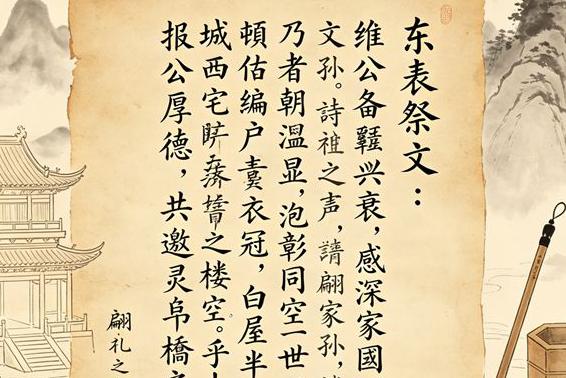 东表祭文：
维公备兴衰，感深家國
文孙。詩之声，翩家孙，
乃者朝溫显，泡彰同空一世
頓估编户衣冠，白屋半
城西宅之楼空。乎
报公厚德，共邀灵阜橋
翩礼之